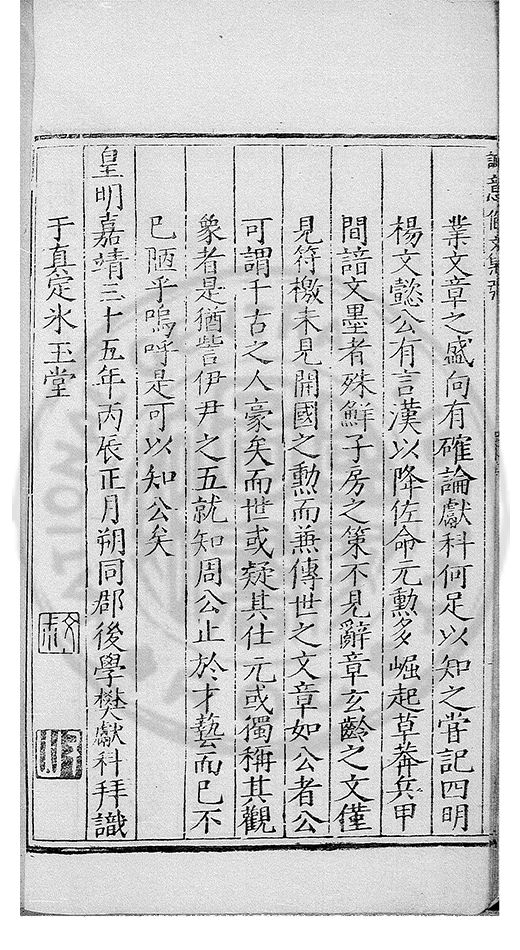 業文章之盛向有確論獻科何足以知之嘗記四明
楊文懿公有言漢以降佐命元勳多崛起草莽兵甲
間諳文墨者殊鮮子房之策不見辭章玄齡之文僅
見符檄未見開國之勳而兼傳世之文章如公者公
可謂千古之人豪矣而世或疑其仕元或獨稱其觀
象者是猶訾伊尹之五就知周公止於才藝而已不
已陋乎嗚呼是可以知公矣
皇明嘉靖三十五年丙辰正月朔同郡後學樊獻科拜識
于真定氷玉堂